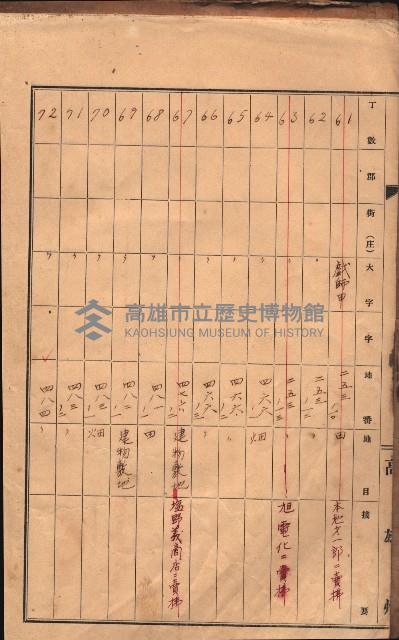 丁數 郡 街(庄) 大字 字 地番 地目 摘要
61 戲獅甲 二五三ノ一〇 田
62 〃 二五三ノ一二 〃
63 〃 二五三ノ一三 〃 旭電化ニ賣拂
64 〃 四六六 畑
65 〃 四六六ノ一 〃
66 〃 四六六ノ二 〃
67 〃 建物敷地 塩野義商店ニ賣拂
68 〃 四八一 田
69 〃 四八二ノ一 建物敷地
70 〃 畑
71 〃 四八三ノ二 〃
72 〃 四八四ノ二 〃
高雄州
高雄市立歷史博物館
KAOHSIUNG MUSEUM OF HISTORY